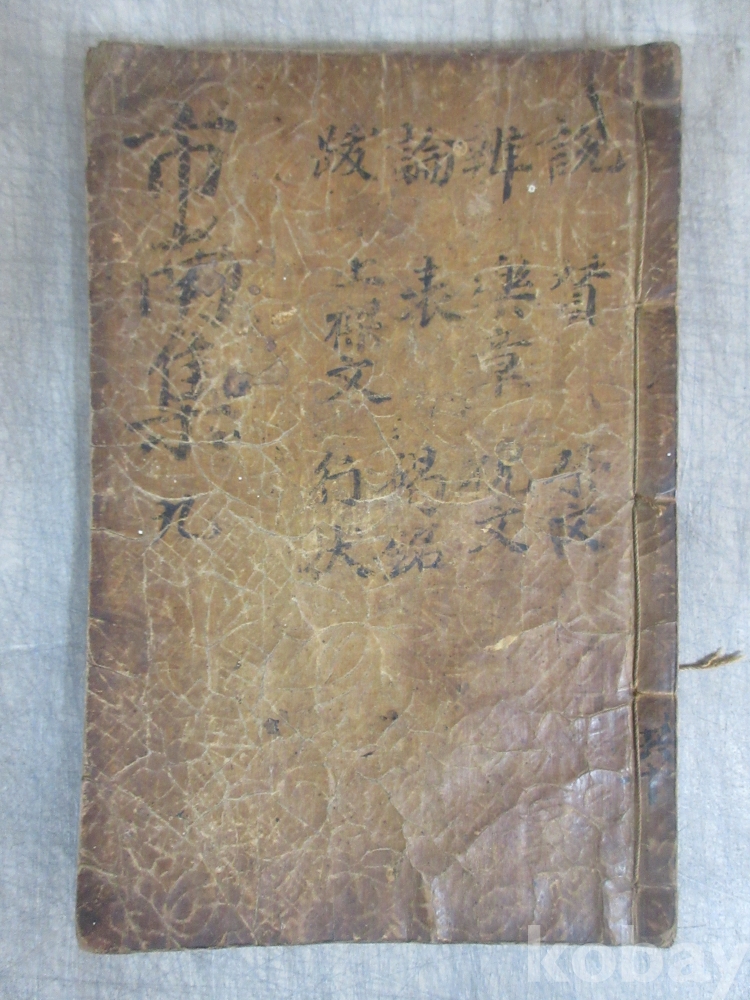 說 贊
辨 樂章 祝文
論 表 碣銘
跋 上樑文 行狀
市南集 九
kobay